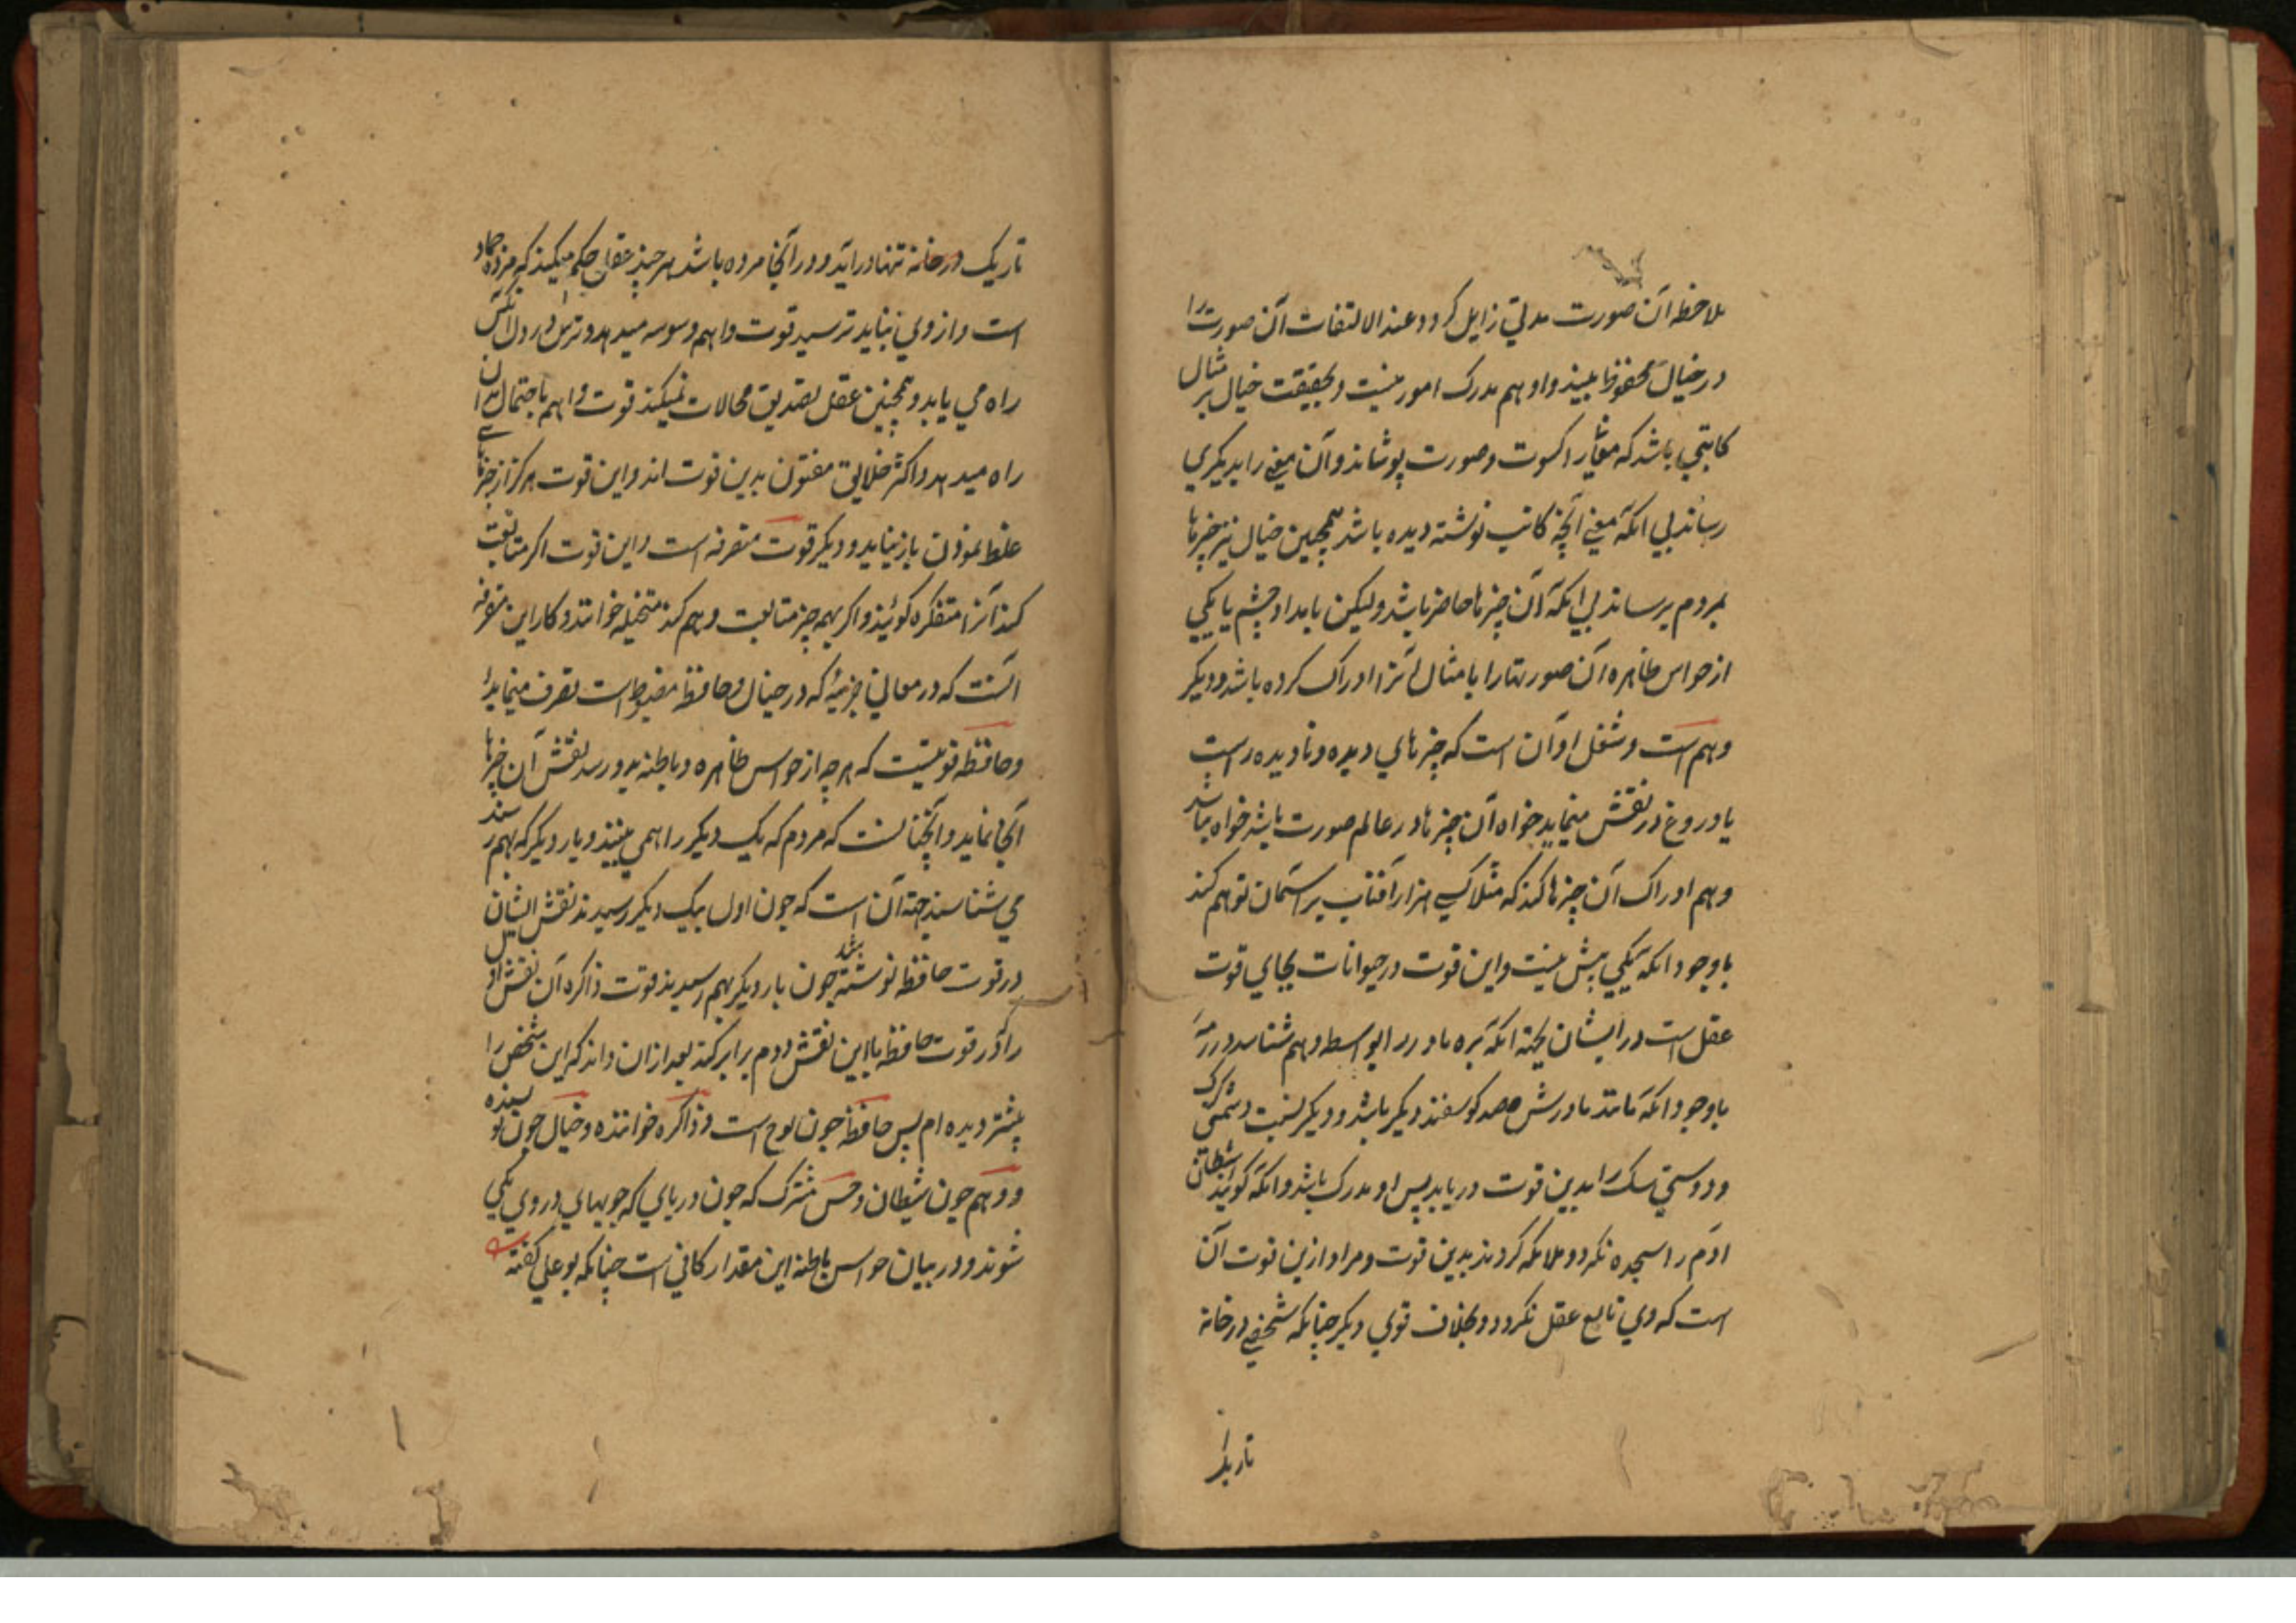 ملاحظه آن صورت مدتي زايل كردد عند الالتفات آن صورت را
در خيال محفوظ بيند و او هم مدرك امور نيست و بحقيقت خيال بر مثال
كاتبي باشد كه معاني را كسوت و صورت پوشاند و آن معني را بديكري
رساند بي آنكه معني آنچه كاتب نوشته ديده باشد همچنين خيال نيز چيزها
بمردم برساند بي آنكه آن چيزها حاضر باشد وليكن بايد او چشم يا يكي
از حواس ظاهره آن صورتها را يا مثال آنرا ادراك كرده باشد و ديكر
وهم است و شغل او آن است كه چيزهاي ديده و ناديده راست
يا دروغ در نقش مينمايد خواه آن چيزها در عالم صورت باشد خواه نباشد
وهم ادراك آن چيزها كند كه مثلا كسي هزار آفتاب بر آسمان توهم كند
با وجود آنكه يكي بيش نيست و اين قوت در حيوانات بجاي قوت
عقل است در ايشان بجهة آنكه بره مادر را بواسطه وهم شناسد در رمه
با وجود آنكه مانند مادرش صد كوسفند ديكر باشد و ديكر نسبت دشمني كرك
و دوستي سك را بدين قوت دريابد پس او مدرك باشد و آنكه كويند شيطان
آدم را سجده نكرد و ملائكه كردند بدين قوت و مراد ازين قوت آن
است كه وي تابع عقل نكردد و بخلاف قوي ديكر چنانكه شخصي در خانه
تاريك
تاريك در خانه تنها درآيد و در آنجا مرده باشد هر چند عقل حكم ميكند كه مرده جماد
است و از وي نبايد ترسيد قوت واهم وسوسه ميدهد و ترس در دل آنكس
راه مي يابد و همچنين عقل تصديق محالات نميكند قوت واهم باحتمال بدان
راه ميدهد و اكثر خلايق مفتون بدين قوت اند و اين قوت هركز از چيزهاي
غلط نمودن باز نيايد و ديكر قوت متصرفه است و اين قوت اكر متابعت
كند آنرا متفكره كويند و اكر بهمه چيز متابعت وهم كند متخيله خوانند و كار اين متصرفه
آنست كه در معاني جزئيه كه در خيال و حافظه مضبوط است تصرف مينمايد
و حافظه قوتيست كه هر چه از حواس ظاهره و باطنه بدو رسد نقش آن چيزها
آنجا نمايد و آنچنانست كه مردم كه يك ديكر را همي بينند و بار ديكر كه بهم رسند
مي شناسند جهة آن است كه چون اول بيك ديكر رسيدند نقش ايشان
در قوت حافظه نوشته شد چون بار ديكر بهم رسيدند قوت ذاكره آن نقش اول
را در قوت حافظه با اين نقش دوم برابر كند بعد از ان داند كه اين شخص را
پيشتر ديده ام پس حافظه چون لوح است و ذاكره خواننده و خيال چون نويسنده
و وهم چون شيطان و حس مشترك كه چون درياي كه جويهاي در وي يكي
شوند و در بيان حواس باطنه اين مقدار كافي است چنانكه بو علي كفته